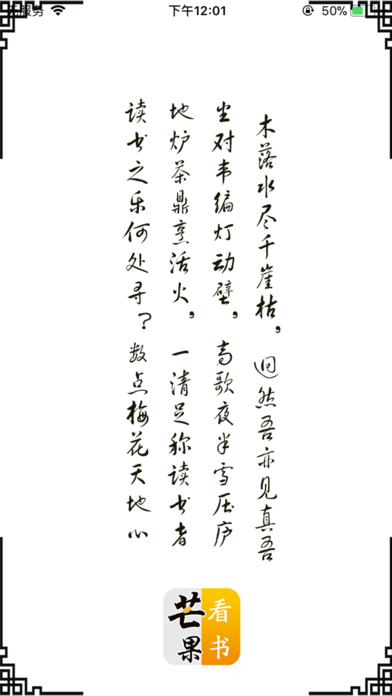 服务
下午12:01
50%
木落水尽千崖枯，迥然吾亦见真吾
坐对韦编灯动壁，高歌夜半雪压庐
地炉茶鼎烹活火，一清足称读书者
读书之乐何处寻？数点梅花天地心
芒果
看书